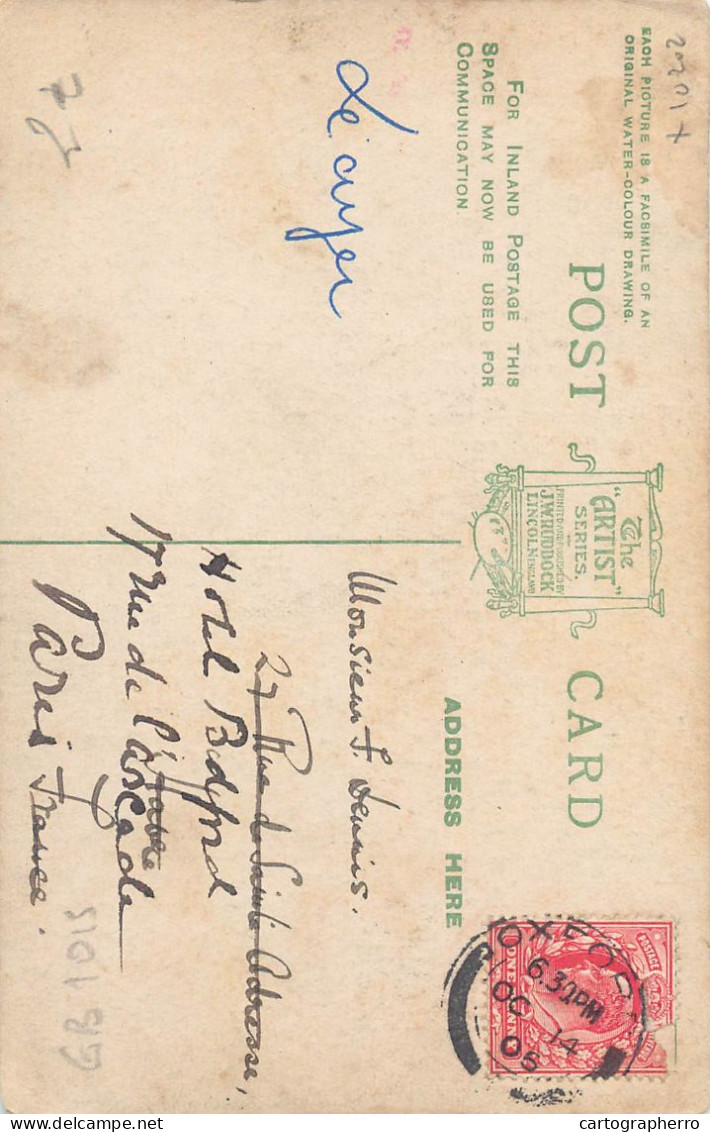 EACH PICTURE IS A FACSIMILE OF AN
ORIGINAL WATER-COLOUR DRAWING.
POST CARD
The
"ARTIST"
SERIES.
PRINTED AND PUBLISHED BY
J.W.RUDDOCK
LINCOLN ENGLAND
FOR INLAND POSTAGE THIS
SPACE MAY NOW BE USED FOR
COMMUNICATION.
ADDRESS HERE
OXFORD
6.30PM
OC 14
06
POSTAGE
ONE PENNY
Monsieur F. Dennis.
27 Rue de Sainte Adresse,
Hotel Bedford
17 Rue de l'Arcade
Paris France.
GB 1015
delcampe.net
cartographerro